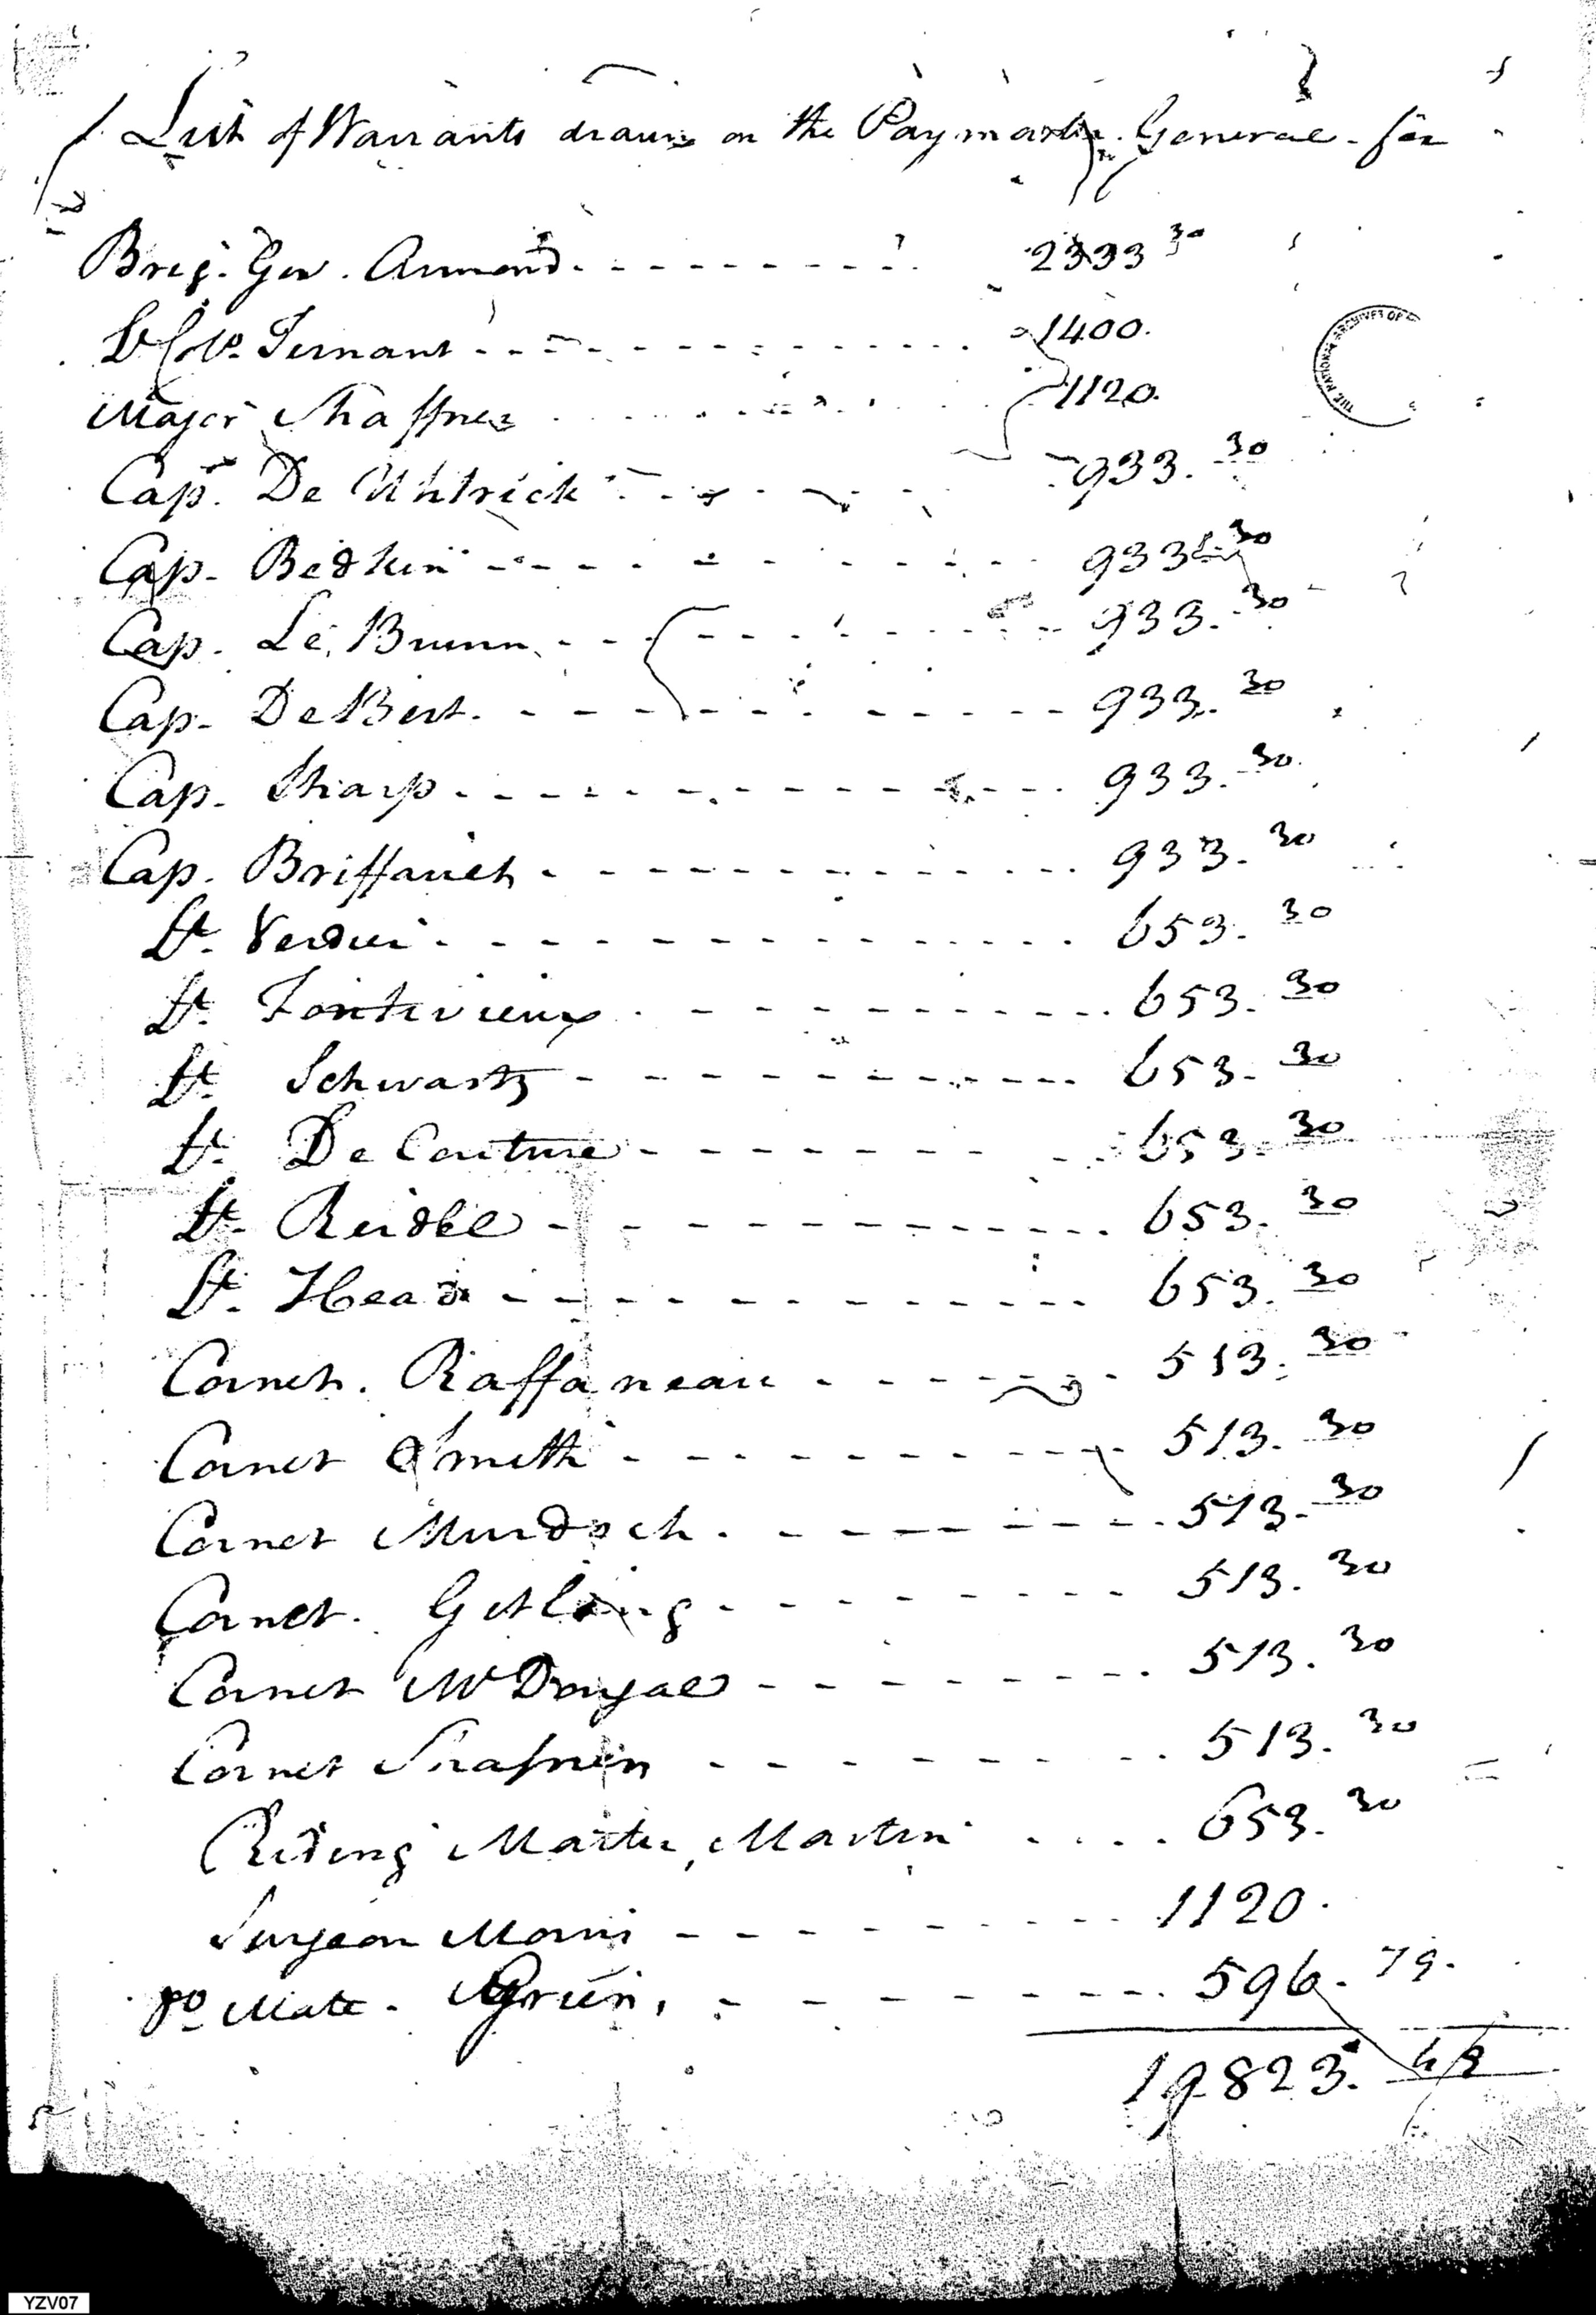 List of Warrants drawn on the Paymaster General for
Brig. Gen. Armand 2333 30
Lt Colo. Ternant 1400.
Major Shaffner 1120.
Cap. De Uhtrick 933. 30
Cap. Bedkin 933 30
Cap. Le Brunn 933. 30
Cap. De Bert 933. 30
Cap. Sharp 933. 30
Cap. Briffault 933. 30
Lt. Verdier 653. 30
Lt. Fontivieux 653. 30
Lt. Schwartz 653. 30
Lt. De Couture 653. 30
Lt. Reidel 653. 30
Lt. Head 653. 30
Cornet. Raffaneau 513. 30
Cornet Smith 513. 30
Cornet Murdoch 513. 30
Cornet. Gisling 513. 30
Cornet McDougal 513. 30
Cornet Shafnen 513. 30
Riding Master, Martin 653. 30
Surgeon Morris 1120.
Do Mate. Green, 596. 79.
19823.
THE NATIONAL ARCHIVES OF
YZV07